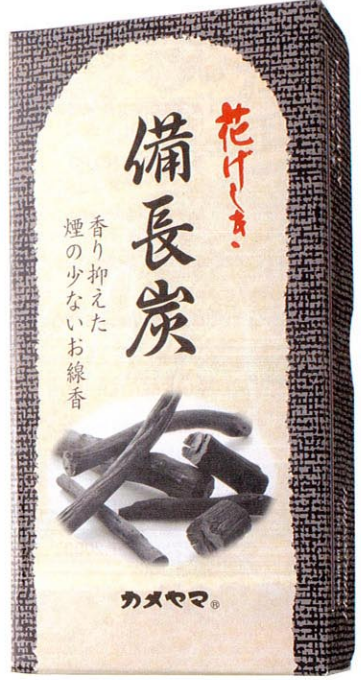 花げしき
備長炭
香り抑えた
煙の少ないお線香
カメヤマ®